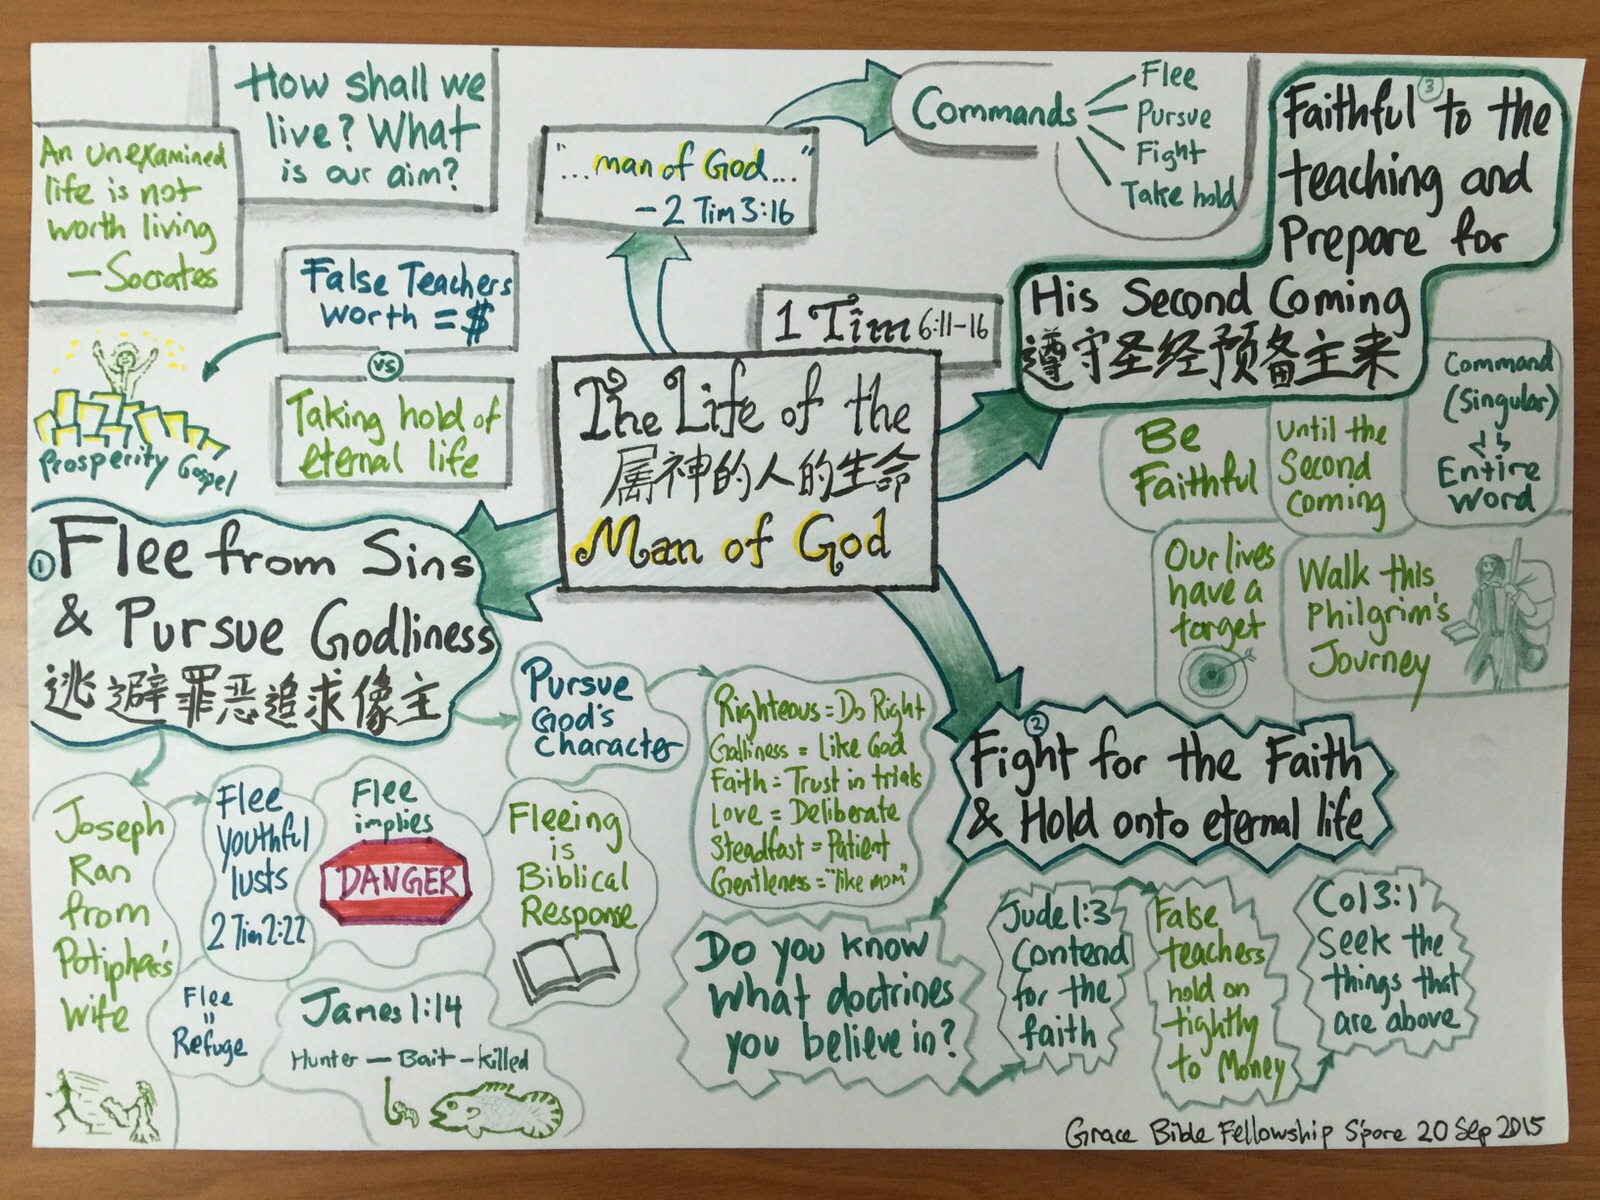 How shall we
live? What
is our aim?
An unexamined
life is not
worth living
— Socrates
False Teachers
worth = $
vs
Taking hold of
eternal life
Prosperity Gospel
"...man of God..."
- 2 Tim 3:16
Commands
Flee
Pursue
Fight
Take hold
1 Tim 6:11-16
The Life of the
属神的人的生命
Man of God
① Flee from Sins
& Pursue Godliness
逃避罪恶追求像主
Joseph
Ran
from
Potiphar's
Wife
Flee
youthful
lusts
2 Tim 2:22
Flee
=
Refuge
Flee
implies
DANGER
James 1:14
Hunter — Bait - killed
Fleeing
is
Biblical
Response
Pursue
God's
character
Righteous = Do Right
Godliness = like God
Faith = Trust in trials
Love = Deliberate
Steadfast = Patient
Gentleness = "like mom"
②
Fight for the Faith
& Hold onto eternal life
Do you know
what doctrines
you believe in?
Jude 1:3
Contend
for the
faith
False
teachers
hold on
tightly
to Money
Col 3:1
Seek the
things that
are above
③
Faithful to the
teaching and
Prepare for
His Second Coming
遵守圣经预备主来
Be
Faithful
until the
Second
coming
Command
(Singular)
Entire
Word
Our lives
have a
target
Walk this
Philgrim's
Journey
Grace Bible Fellowship S'pore 20 Sep 2015